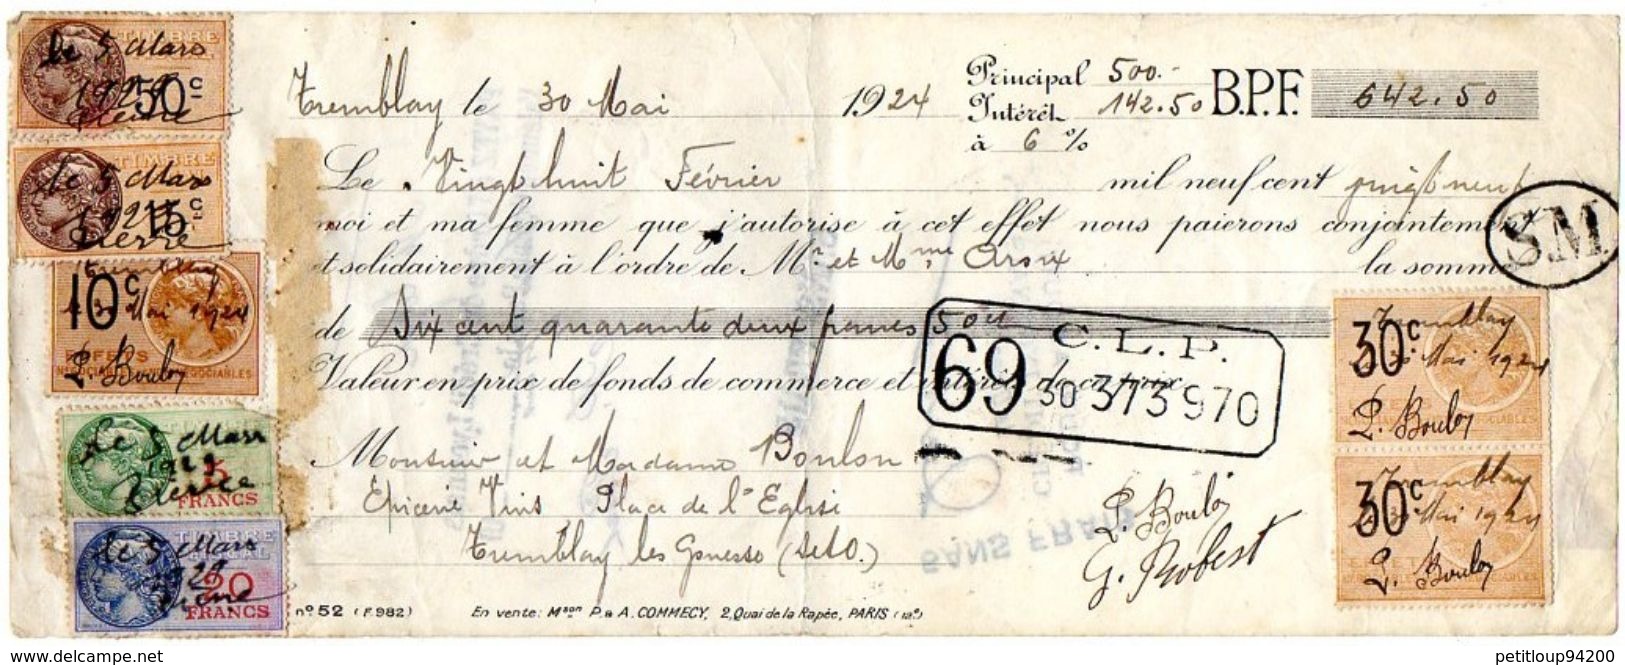 TIMBRE
le 5 Mars
1929
50c
Pierre
TIMBRE
le 5 Mars
1929
15c
Pierre
Tremblay
10c
30 Mai 1924
EFFETS
NÉGOCIABLES
NON NÉGOCIABLES
P. Boulon
Le 5 Mars
1929
5
FRANCS
Pierre
TIMBRE
le 5 Mars
1929
20
FRANCS
Pierre
Tremblay le 30 Mai 1924
Principal 500.-
Intérêt 142.50
à 6 %
B.P.F. 642.50
Le Vingt huit Février mil neuf cent vingt neuf
moi et ma femme que j'autorise à cet effet nous paierons conjointement
et solidairement à l'ordre de Mr et Mme Croix la somme
de Six cent quarante deux francs 50 cts
Valeur en prix de fonds de commerce et intérêts de ce prix
C.L.P.
69 30 373970
SM
Monsieur et Madame Boulon
Epicerie Vins Place de l'Eglise
Tremblay les Gonesse (S et O.)
P. Boulon
G. Robert
SANS FRAIS
Tremblay
30c
30 Mai 1924
P. Boulon
Tremblay
30c
30 Mai 1924
P. Boulon
no 52 (F.982) En vente: Mson P. & A. COMMECY, 2, Quai de la Rapée, PARIS (12e)
delcampe.net
petitloup94200